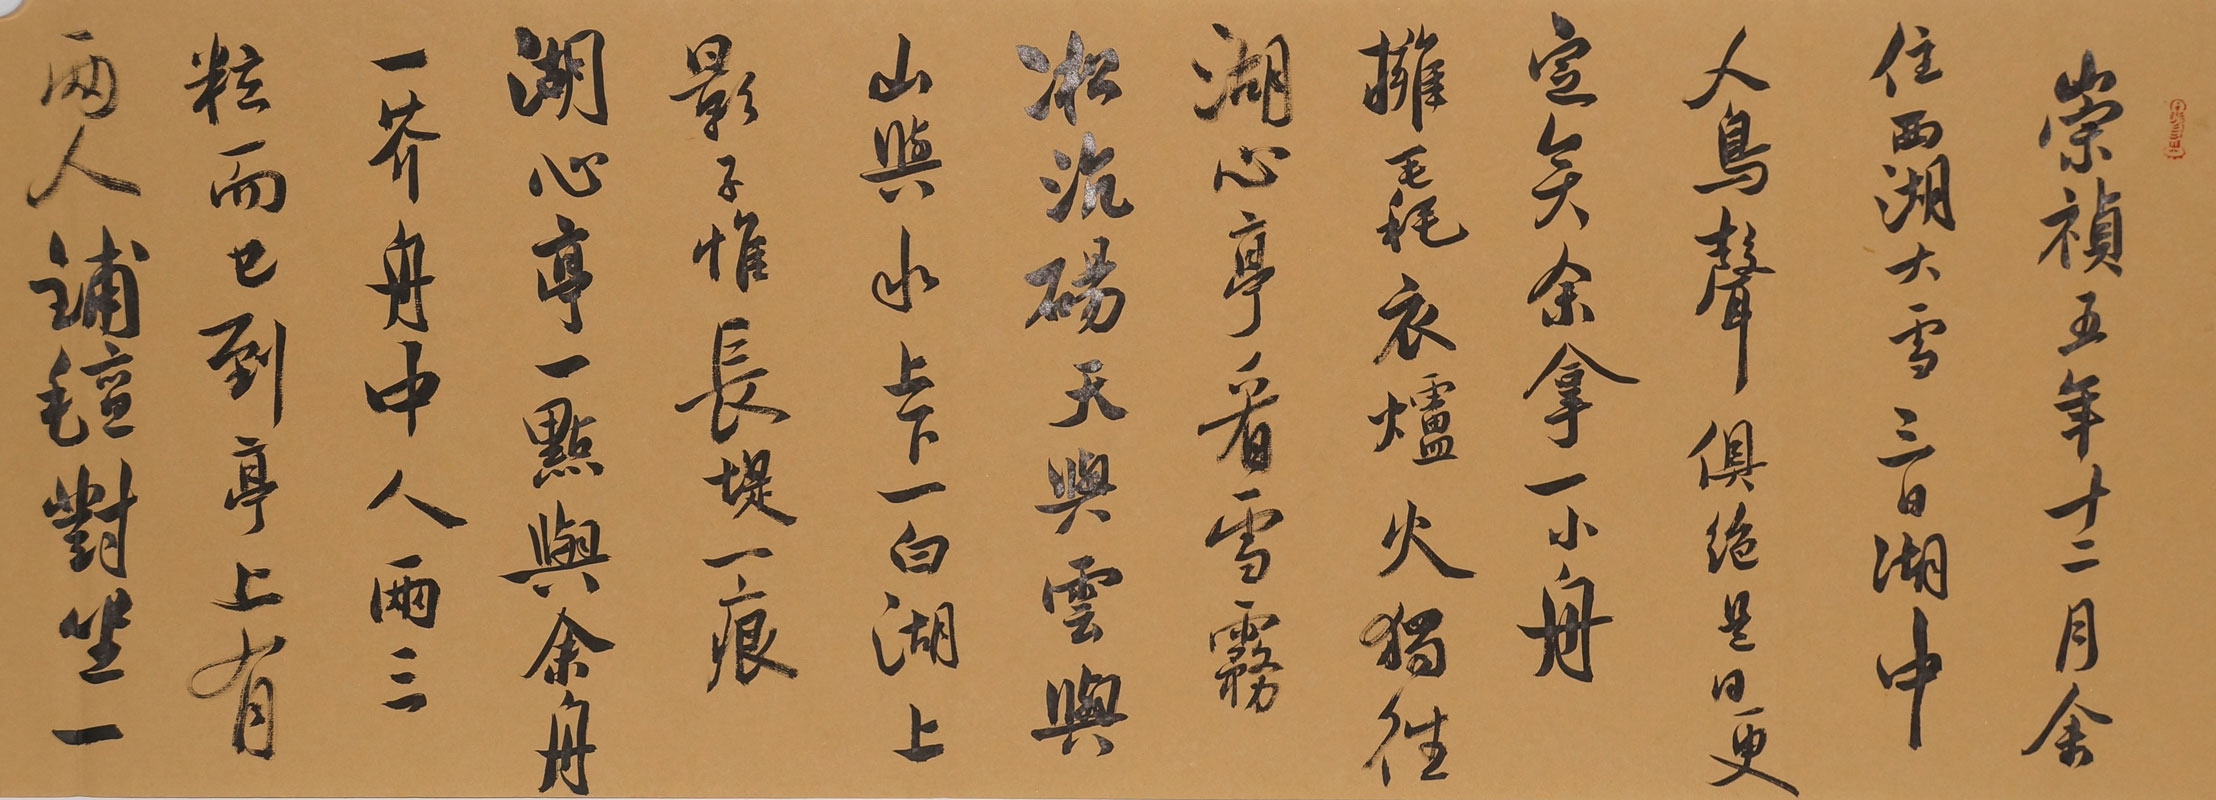 崇禎五年十二月余
住西湖大雪三日湖中
人鳥聲俱絕是日更
定矣余拏一小舟
擁毳衣爐火獨往
湖心亭看雪霧
凇沆碭天與雲與
山與水上下一白湖上
影子惟長堤一痕
湖心亭一點與余舟
一芥舟中人兩三
粒而已到亭上有
兩人鋪氈對坐一